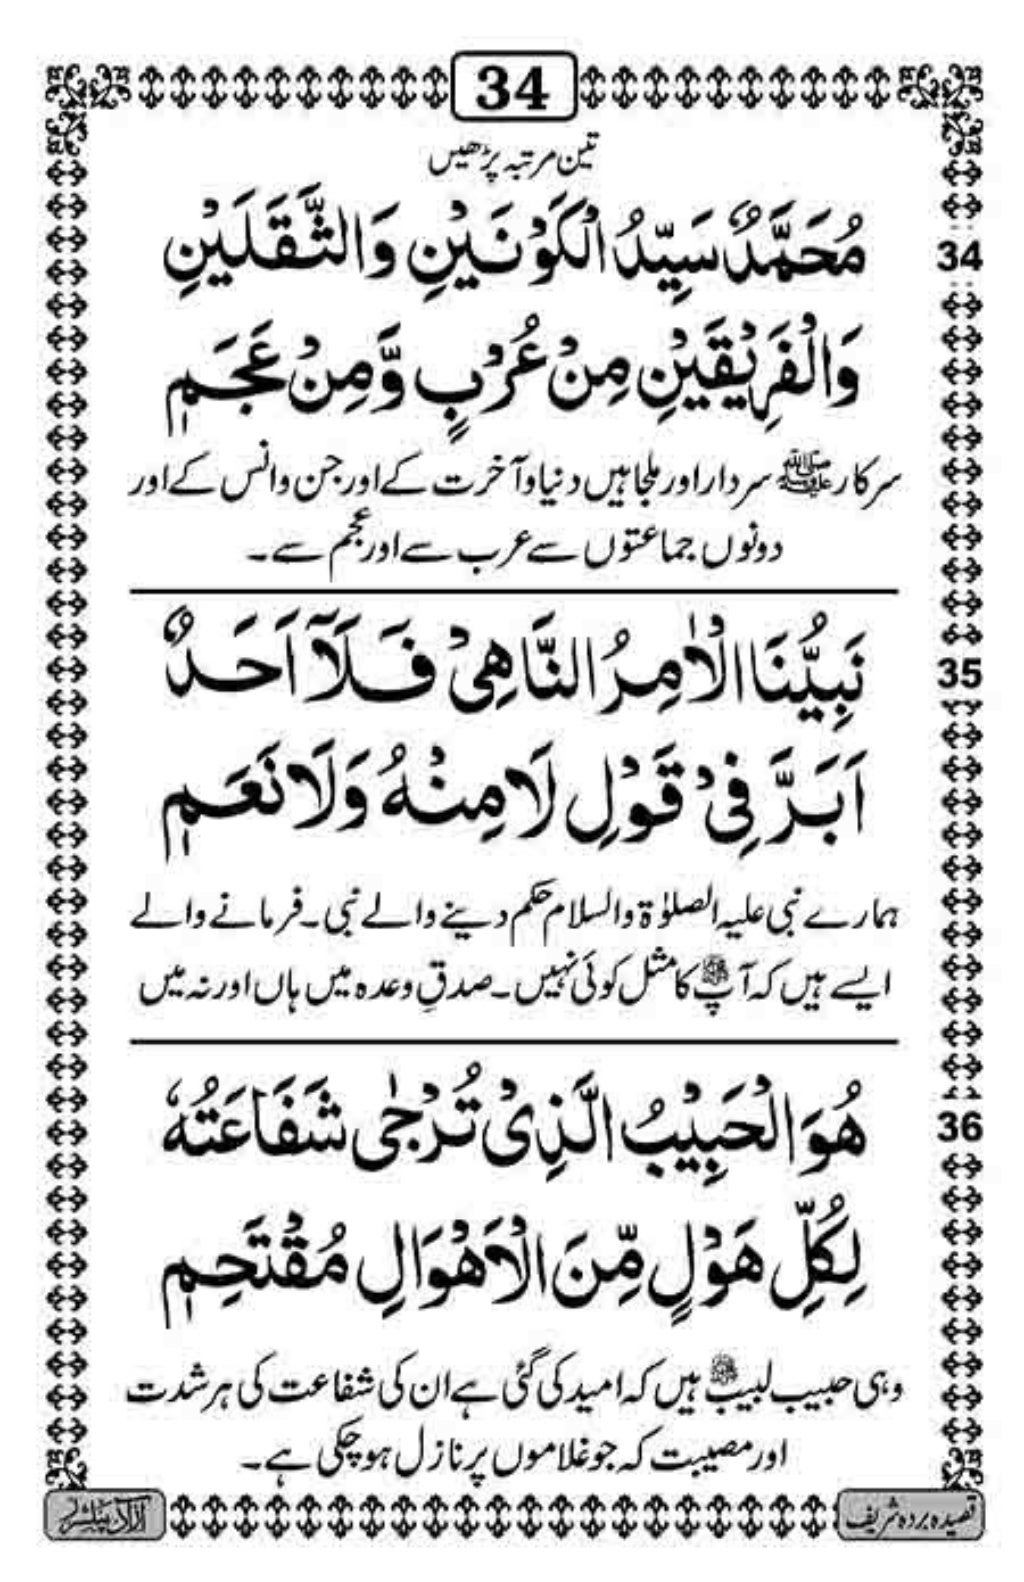 34
تین مرتبہ پڑھیں
مُحَمَّدٌ سَیِّدُ الْکَوْنَیْنِ وَالثَّقَلَیْنِ
34
وَالْفَرِیْقَیْنِ مِنْ عُرْبٍ وَّمِنْ عَجَمٖ
سرکار ﷺ سردار اور ملجا ہیں دنیا و آخرت کے اور جن و انس کے اور
دونوں جماعتوں سے عرب سے اور عجم سے۔
نَبِیُّنَا الْاٰمِرُ النَّاهِیْ فَلَآ اَحَدٌ
35
اَبَرَّ فِیْ قَوْلِ لَا مِنْهُ وَلَا نَعَمٖ
ہمارے نبی علیہ الصلوٰۃ والسلام حکم دینے والے نبی۔ فرمانے والے
ایسے ہیں کہ آپ ﷺ کا مثل کوئی نہیں۔ صدقِ وعدہ میں ہاں اور نہ میں
هُوَ الْحَبِیْبُ الَّذِیْ تُرْجٰی شَفَاعَتُهٗ
36
لِکُلِّ هَوْلٍ مِّنَ الْاَهْوَالِ مُقْتَحِمٖ
وہی حبیب لبیب ﷺ ہیں کہ امید کی گئی ہے ان کی شفاعت کی ہر شدت
اور مصیبت کہ جو غلاموں پر نازل ہو چکی ہے۔
قصیدہ بردہ شریف
آزاد پبلشرز